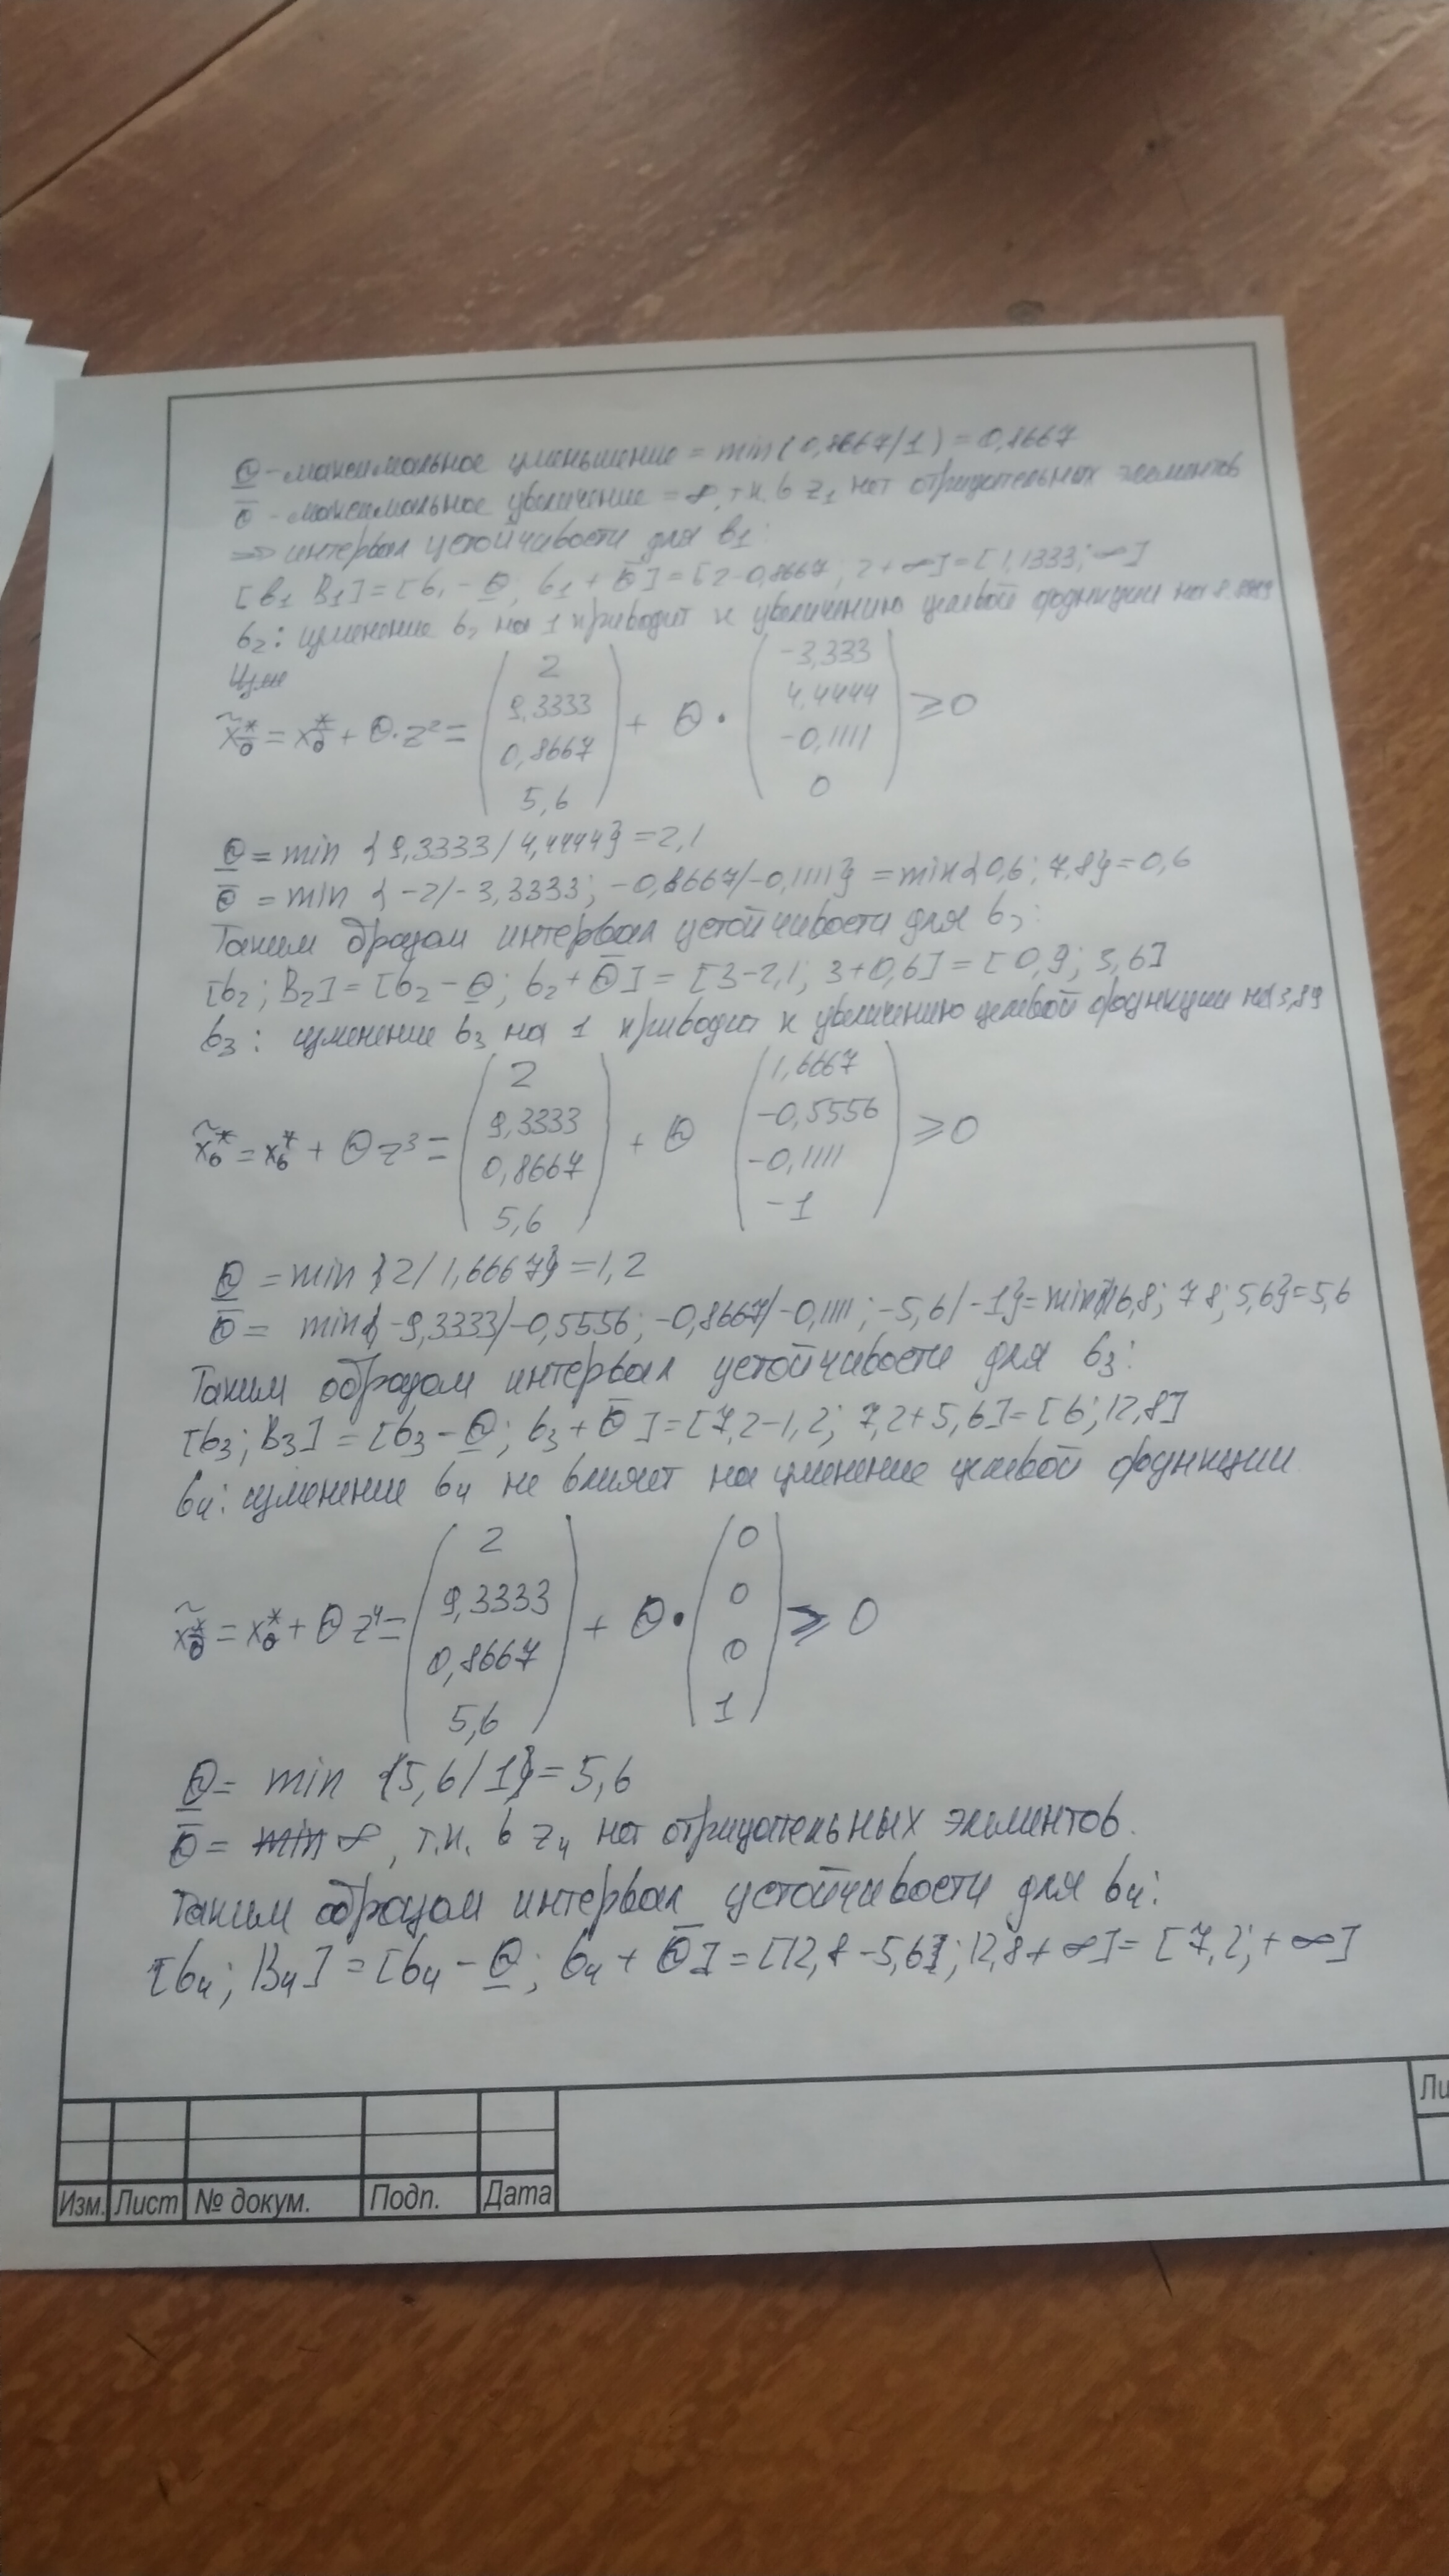 Θ - максимальное уменьшение = min(0,8667/1) = 0,8667
Θ - максимальное увеличение = ∞, т.к. в z₁ нет отрицательных элементов
=> интервал устойчивости для b₁:
[b₁ B₁] = [b₁ - Θ; b₁ + Θ] = [2-0,8667; 2+∞] = [1,1333; ∞]
b₂: изменение b₂ на 1 приводит к увеличению целевой функции на
x̃*б = x*б + Θ·z² = (2 9,3333 0,8667 5,6) + Θ · (-3,333 4,4444 -0,1111 0) ≥ 0
Θ = min {9,3333/4,4444} = 2,1
Θ = min {-2/-3,3333; -0,8667/-0,1111} = min{0,6; 7,8} = 0,6
Таким бразом интервал устойчивости для b₂:
[b₂; B₂] = [b₂ - Θ; b₂ + Θ] = [3-2,1; 3+0,6] = [0,9; 3,6]
b₃: изменение b₃ на 1 приводит к увеличению целевой функции на 3,89
x̃*б = x*б + Θ z³ = (2 9,3333 0,8667 5,6) + Θ (1,6667 -0,5556 -0,1111 -1) ≥ 0
Θ = min {2/1,6667} = 1,2
Θ = min{-9,3333/-0,5556; -0,8667/-0,1111; -5,6/-1} = min{16,8; 7 8; 5,6} = 5,6
Таким образом интервал устойчивости для b₃:
[b₃; B₃] = [b₃ - Θ; b₃ + Θ] = [7,2-1,2; 7,2+5,6] = [6; 12,8]
b₄: изменение b₄ не влияет на изменение целевой функции
x̃*б = x*б + Θ z⁴ = (2 9,3333 0,8667 5,6) + Θ · (0 0 0 1) ≥ 0
Θ = min {5,6/1} = 5,6
Θ = min ∞, т.к. в z₄ нет отрицательных элементов.
Таким образом интервал устойчивости для b₄:
[b₄; B₄] = [b₄ - Θ; b₄ + Θ] = [12,8-5,6; 12,8+∞] = [7,2; +∞]
Изм. Лист № докум. Подп. Дата